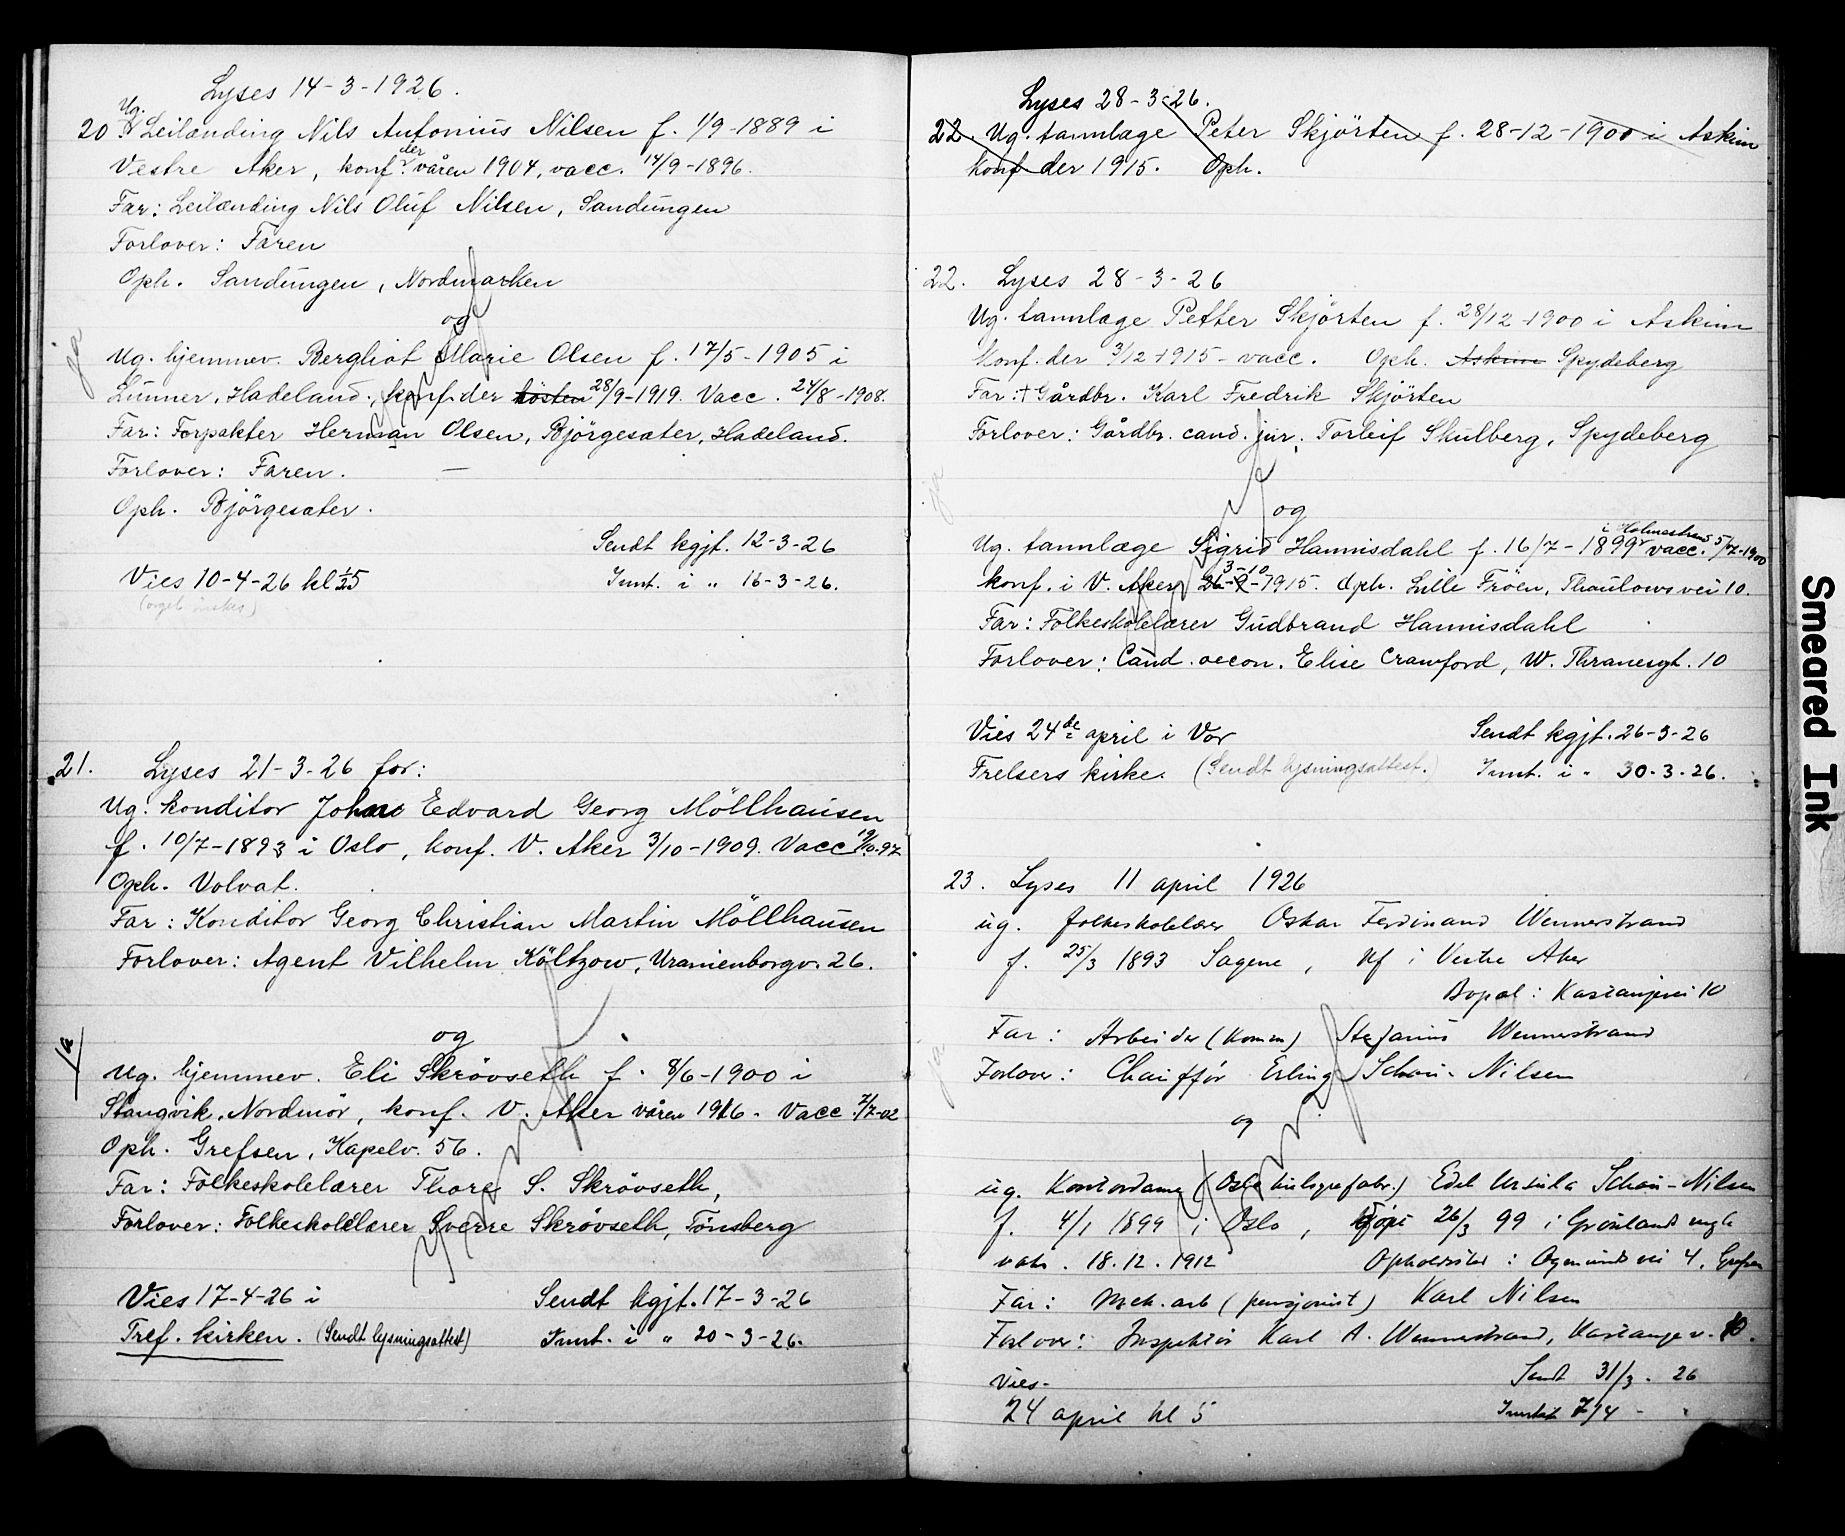 Lyses 14-3-1926.
Ug.
20 Leilænding Nils Antonius Nilsen f. 1/9-1889 i
Vestre Aker, konf. der våren 1904, vacc. 14/9-1896.
Far: Leilænding Nils Oluf Nilsen, Sandungen
Forlover: Faren
Oph. Sandungen, Nordmarken
og
ja
Ug. hjemmev. Bergliot Marie Olsen f. 17/5-1905 i
Lunner, Hadeland, konf. der hösten 28/9-1919. Vacc. 24/8-1908.
Far: Forpakter Herman Olsen, Björgesæter, Hadeland.
Forlover: Faren. —
Oph. Björgesæter.
Sendt kgjt. 12-3-26
Vies 10-4-26 kl
Innt. i " 16-3-26.
21. Lyses 21-3-26 for:
Ug. konditor John Edvard Georg Möllhausen
f. 10/7-1893 i Oslo, konf. V. Aker 3/10-1909. Vacc 19/10-97
Oph. Volvat.
Far: Konditor Georg Christian Martin Möllhausen
Forlover: Agent Vilhelm Költzow, Uranienborgv. 26.
og
ja
Ug. hjemmev. Eli Skrövseth f. 8/6-1900 i
Stangvik, Nordmör, konf. V. Aker våren 1916. Vacc 7/7-02
Oph. Grefsen, Kapelv. 56.
Far: Folkeskolelærer Thore S. Skrövseth,
Forlover: Folkeskolelærer Sverre Skrövseth, Tönsberg
Vies 17-4-26 i Sendt kgjt. 17-3-26
Tref. kirken. (Sendt lysningsattest) Innt. i " 20-3-26.
Lyses 28-3-26.
22. Ug. tannlæge Peter Skjörten f. 28-12-1900 i Askim
konf der 1915. Oph.
22. Lyses 28-3-26
Ug. tannlæge Petter Skjörten f. 28/12-1900 i Askim
Konf. der 3/12-1915- vacc. Oph. Askim Spydeberg
Far: + Gårdbr. Karl Fredrik Skjörten
Forlover: Gårdbr. cand. jur. Torleif Skulberg, Spydeberg
ja
og
i Holmestrand
Ug. tannlæge Sigrid Hannisdahl f. 16/7-1899 vacc. 5/7-1900
3-10
konf. i V. Aker 26-9-1915. Oph. Lille Fröen, Thaulows vei 10.
Far: Folkeskolelærer Gudbrand Hannisdahl
Forlover: Cand. oecon. Elise Crawford, W. Thranesgt. 10
Vies 24de april i Vor Sendt kgjt. 26-3-26
Frelsers kirke. (Sendt lysningsattest.) Innt. i " 30-3-26.
23. Lyses 11 april 1926
ug. folkeskolelærer Oskar Ferdinand Wennerstrand
f. 25/3 1893 Sagene, kf i Vestre Aker
Bopæl: Kastanjevei 10
Far: Arbeider (komm) Stefanus Wennerstrand
Forlover: Chauffør Erling Schou-Nilsen
ja
og
ug. Kontordame (Oslo) Edel Ursula Schou-Nilsen
f. 4/1 1899 i Oslo, döpt 26/3 99 i Grönland
18.12.1912 Opholdssted: Ogmunds vei 4, Grefsen
Far: Mek. arb (pensjonist) Karl Nilsen
Forlover: Inspektör Karl A. Wennerstrand, Kastanjev. 10.
Vies- Sendt 31/3. 26
24 april kl 5 7/4 - "
Smeared Ink